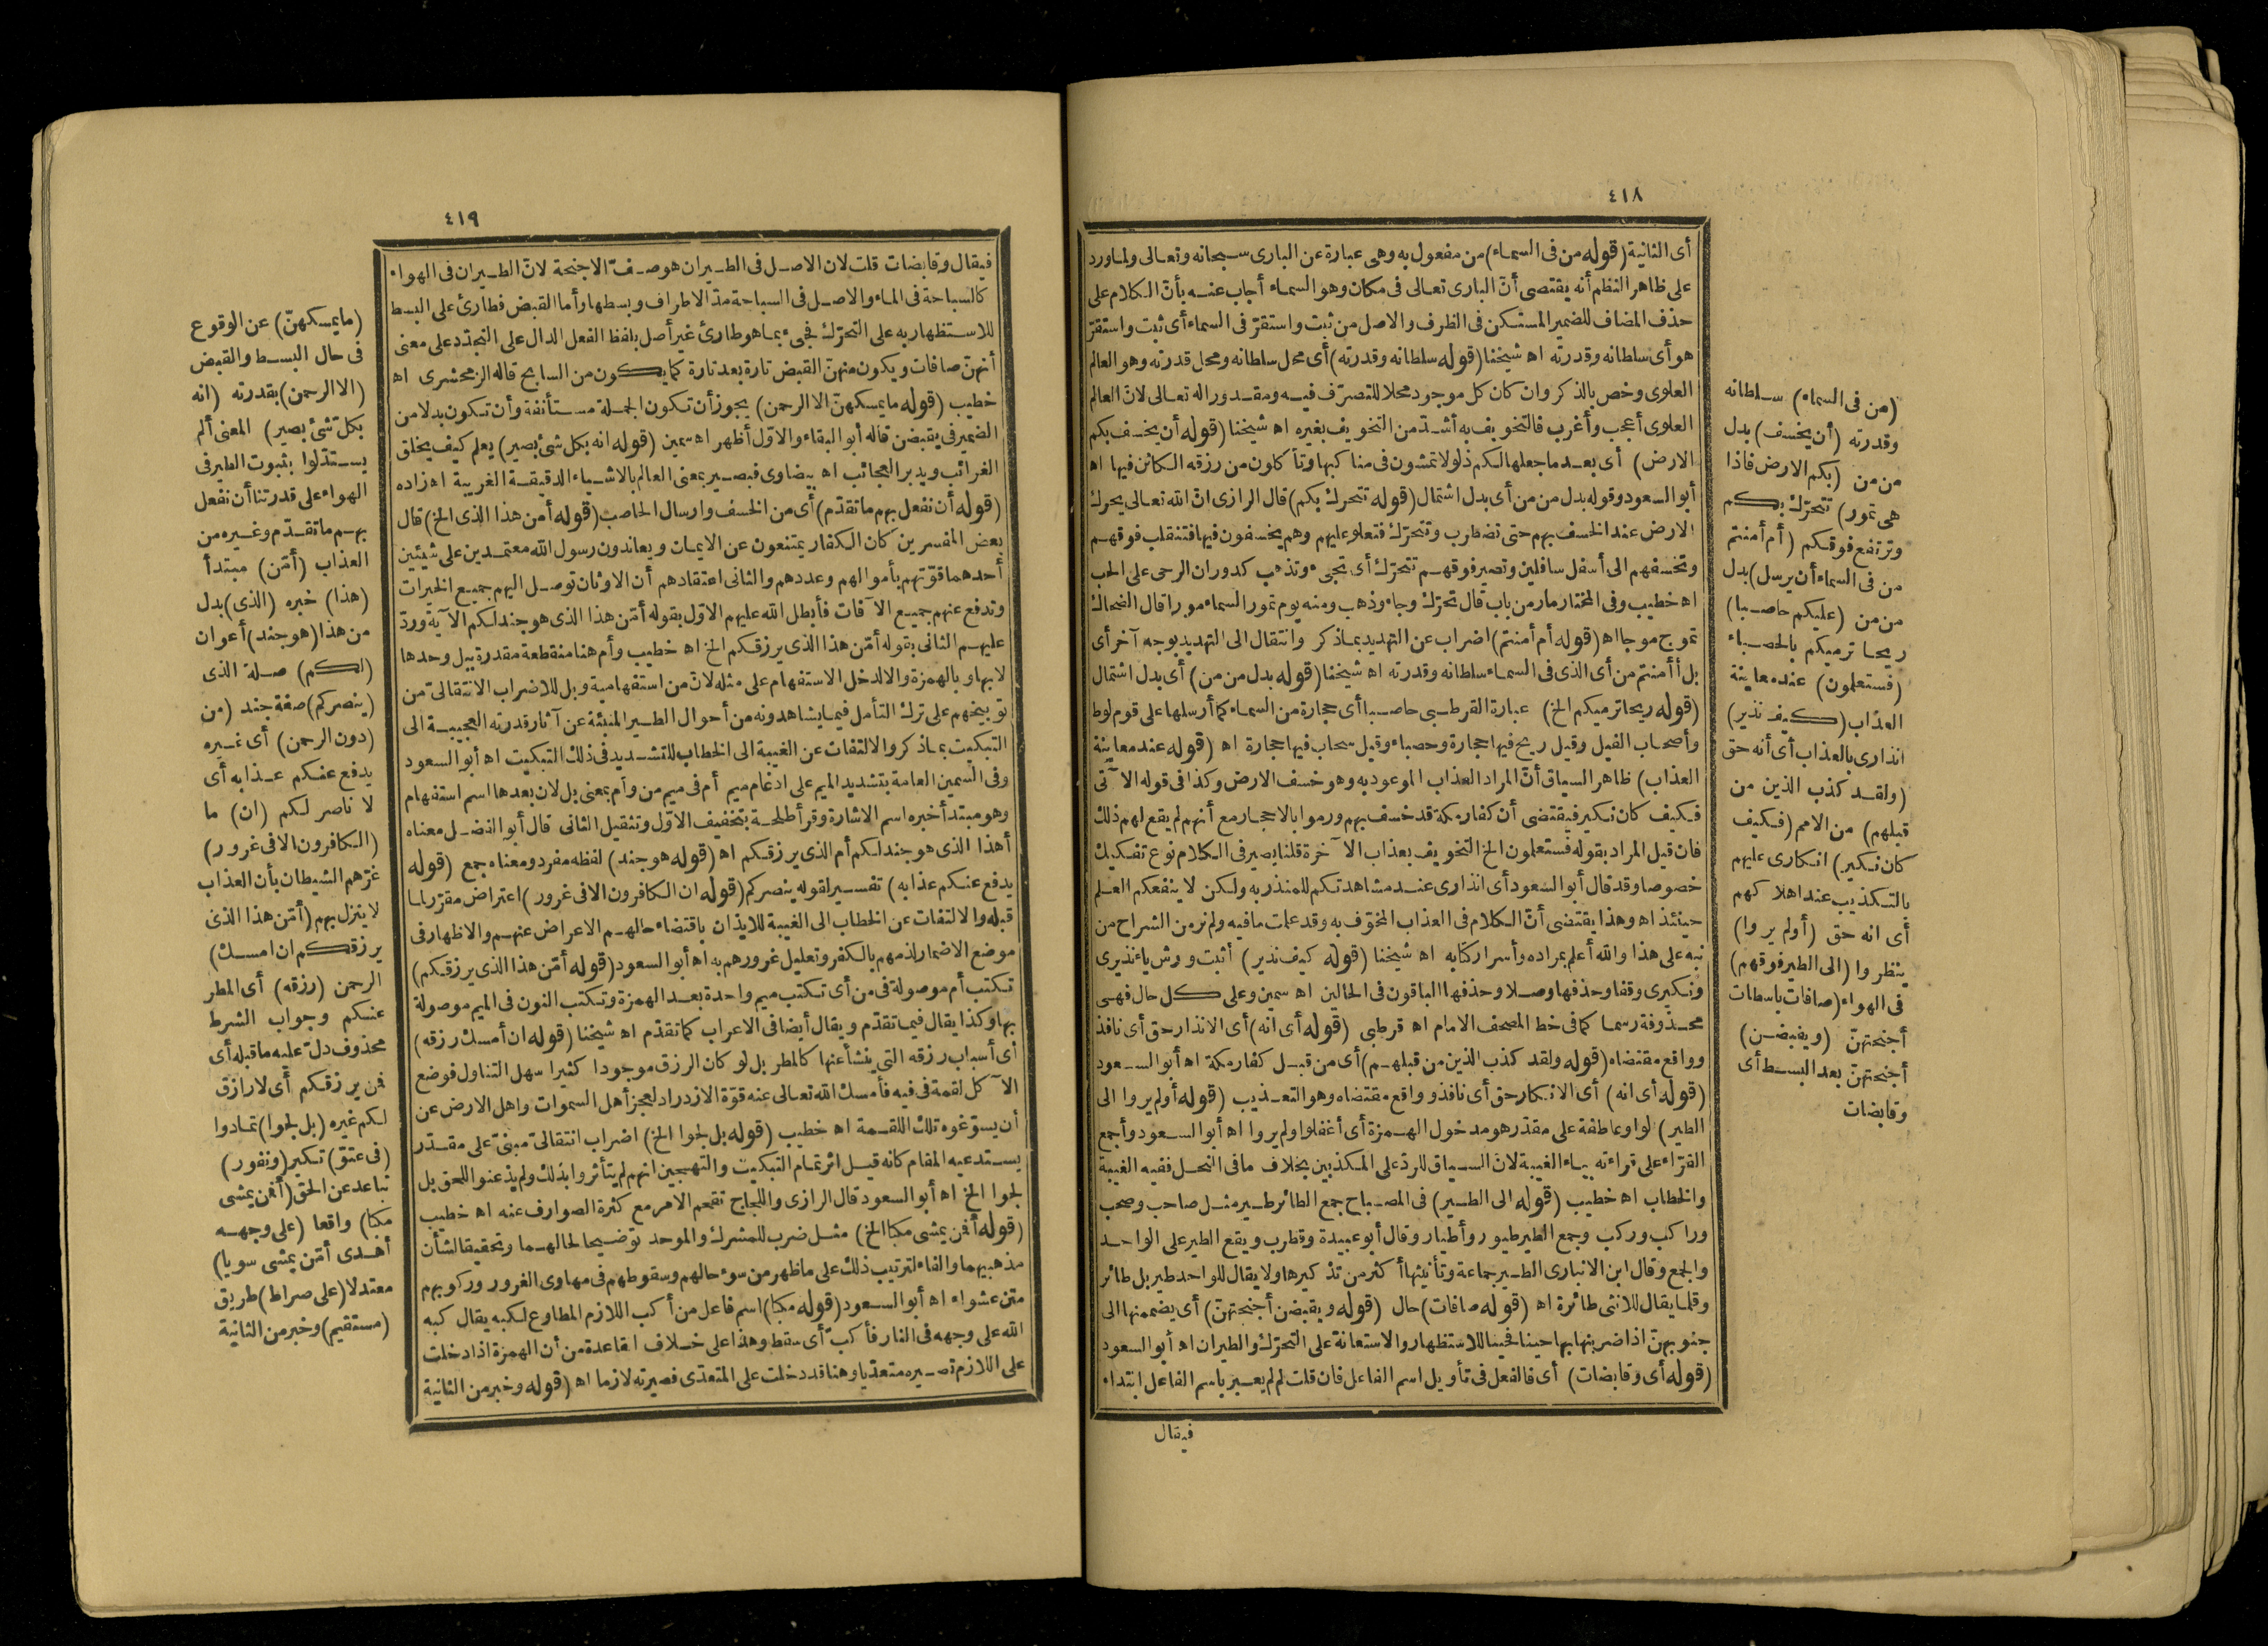 ٤١٨
أى الثانية (قوله من فى السماء) من مفعول به وهى عبارة عن البارى سبحانه وتعالى ولما ورد
على ظاهر النظم أنه يقتضى أنّ البارى تعالى فى مكان وهو السماء أجاب عنه بأنّ الكلام على
حذف المضاف للضمير المستكن فى الظرف والاصل من ثبت واستقرّ فى السماء أى ثبت واستقرّ
هو أى سلطانه وقدرته اه شيخنا (قوله سلطانه وقدرته) أى محل سلطانه ومحل قدرته وهو العالم
العلوى وخص بالذكر وان كان كل موجود محلا للتصرّف فيه ومقدوراله تعالى لانّ العالم
العلوى أعجب وأغرب فالتخويف به أشدّ من التخويف بغيره اه شيخنا (قوله أن يخسف بكم
الارض) أى بعد ما جعلها لكم ذلولا تمشون فى مناكبها وتأكلون من رزقه الكائن فيها اه
أبو السعود وقوله بدل من من أى بدل اشتمال (قوله تتحرك بكم) قال الرازى انّ الله تعالى يحرك
الارض عند الخسف بهم حتى تضطرب وتتحرّك فتعلو عليهم وهم يخسفون فيها فتنقلب فوقهم
وتخسفهم الى أسفل سافلين وتصير فوقهم تتحرّك أى تجىء وتذهب كدوران الرحى على الحب
اه خطيب وفى المختار مار من باب قال تحرّك وجاء وذهب ومنه يوم تمور السماء مورا قال الضحاك
تموج موجا اه (قوله أم أمنتم) اضراب عن التهديد بما ذكر وانتقال الى التهديد بوجه آخر أى
بل أأمنتم من أى الذى فى السماء سلطانه وقدرته اه شيخنا (قوله بدل من من) أى بدل اشتمال
(قوله ريحا ترميكم الخ) عبارة القرطبى حاصبا أى حجارة من السماء كما أرسلها على قوم لوط
وأصحاب الفيل وقيل ريح فيها حجارة وحصباء وقيل سحاب فيها حجارة اه (قوله عند معاينة
العذاب) ظاهر السياق أنّ المراد العذاب الموعود به وهو خسف الارض وكذا فى قوله الآتى
فكيف كان نكير فيقتضى أن كفار مكة قد خسف بهم ورموا بالاحجار مع أنهم لم يقع لهم ذلك
فان قيل المراد بقوله فستعلمون الخ التخويف بعذاب الآخرة قلنا يصير فى الكلام نوع تفكيك
خصوصا وقد قال أبو السعود أى انذارى عند مشاهدتكم للمنذر به ولكن لا ينفعكم العلم
حينئذ اه وهذا يقتضى أنّ الكلام فى العذاب المخوّف به وقد علمت ما فيه ولم نر من الشراح من
نبه على هذا والله أعلم بمراده وأسرار كتابه اه شيخنا (قوله كيف نذير) أثبت ورش ياء نذيرى
ونكيرى وقفا وحذفها وصلا وحذفها الباقون فى الحالين اه سمين وعلى كل حال فهى
محذوفة رسما كما فى خط المصحف الامام اه قرطبى (قوله أى انه) أى الانذار حق أى نافذ
وواقع مقتضاه (قوله ولقد كذب الذين من قبلهم) أى من قبل كفار مكة اه أبو السعود
(قوله أى انه) أى الانكار حق أى نافذ وواقع مقتضاه وهو التعذيب (قوله أولم يروا الى
الطير) الواو عاطفة على مقدّر هو مدخول الهمزة أى أغفلوا ولم يروا اه أبو السعود وأجمع
القرّاء على قراءته بياء الغيبة لانّ السياق للردّ على المكذبين بخلاف ما فى النحل ففيه الغيبة
والخطاب اه خطيب (قوله الى الطير) فى المصباح جمع الطائر طير مثل صاحب وصحب
وراكب وركب وجمع الطير طيور وأطيار وقال أبو عبيدة وقطرب ويقع الطير على الواحد
والجمع وقال ابن الانبارى الطير جماعة وتأنيثها أكثر من تذكيرها ولا يقال للواحد طير بل طائر
وقلما يقال للانثى طائرة اه (قوله صافات) حال (قوله ويقبضن أجنحتهنّ) أى يضممنها الى
جنوبهنّ اذا ضربنها بها حينا فحينا للاستظهار والاستعانة على التحرّك والطيران اه أبو السعود
(قوله أى وقابضات) أى فالفعل فى تأويل اسم الفاعل فان قلت لم لم يعبر باسم الفاعل ابتداء
فيقال
(من فى السماء) سلطانه
وقدرته (أن يخسف) بدل
من من (بكم الارض فاذا
هى تمور) تتحرّك بكم
وترتفع فوقكم (أم أمنتم
من فى السماء أن يرسل) بدل
من من (عليكم حاصبا)
ريحا ترميكم بالحصباء
(فستعلمون) عند معاينة
العذاب (كيف نذير)
انذارى بالعذاب أى أنه حق
(ولقد كذب الذين من
قبلهم) من الامم (فكيف
كان نكير) انكارى عليهم
بالتكذيب عند اهلاكهم
أى انه حق (أولم يروا)
ينظروا (الى الطير فوقهم)
فى الهواء (صافات) باسطات
أجنحتهنّ (ويقبضن)
أجنحتهنّ بعد البسط أى
وقابضات
٤١٩
فيقال وقابضات قلت لان الاصل فى الطيران هو صفّ الاجنحة لانّ الطيران فى الهواء
كالسباحة فى الماء والاصل فى السباحة مدّ الاطراف وبسطها وأما القبض فطارئ على البسط
للاستظهار به على التحرّك فجىء بما هو طارئ غير أصل بلفظ الفعل الدال على التجدّد على معنى
أنهنّ صافات ويكون منهنّ القبض تارة بعد تارة كما يكون من السابح قاله الزمخشرى اه
خطيب (قوله ما يمسكهنّ الا الرحمن) يجوز أن تكون الجملة مستأنفة وأن تكون بدلا من
الضمير فى يقبضن قاله أبو البقاء والاوّل أظهر اه سمين (قوله انه بكل شئ بصير) يعلم كيف يخلق
الغرائب ويدبر العجائب اه بيضاوى فبصير بمعنى العالم بالاشياء الدقيقة الغريبة اه زاده
(قوله أن نفعل بهم ما تقدّم) أى من الخسف وارسال الحاصب (قوله أمن هذا الذى الخ) قال
بعض المفسرين كان الكفار يمتنعون عن الايمان ويعاندون رسول الله معتمدين على شيئين
أحدهما قوّتهم بأموالهم وعددهم والثانى اعتقادهم أن الاوثان توصل اليهم جميع الخيرات
وتدفع عنهم جميع الآفات فأبطل الله عليهم الاوّل بقوله أمّن هذا الذى هو جند لكم الآية وردّ
عليهم الثانى بقوله أمّن هذا الذى يرزقكم الخ اه خطيب وأم هنا منقطعة مقدرة ببل وحدها
لا بها وبالهمزة والا لدخل الاستفهام على مثله لانّ من استفهامية وبل للاضراب الانتقالىّ من
توبيخهم على ترك التأمل فيما يشاهدونه من أحوال الطير المنبئة عن آثار قدرته العجيبة الى
التبكيت بما ذكر والالتفات عن الغيبة الى الخطاب للتشديد فى ذلك التبكيت اه أبو السعود
وفى السمين العامة بتشديد الميم على ادغام ميم أم فى ميم من وأم بمعنى بل لان بعدها اسم استفهام
وهو مبتدأ خبره اسم الاشارة وقرأ طلحة بتخفيف الاوّل وتثقيل الثانى قال أبو الفضل معناه
أهذا الذى هو جند لكم أم الذى يرزقكم اه (قوله هو جند) لفظه مفرد ومعناه جمع (قوله
يدفع عنكم عذابه) تفسير لقوله ينصركم (قوله ان الكافرون الا فى غرور) اعتراض مقرّر لما
قبله والالتفات عن الخطاب الى الغيبة للايذان باقتضاء حالهم الاعراض عنهم والاظهار فى
موضع الاضمار لذمهم بالكفر وتعليل غرورهم به اه أبو السعود (قوله أمّن هذا الذى يرزقكم)
تكتب أم موصولة فى من أى تكتب ميم واحدة بعد الهمزة وتكتب النون فى الميم موصولة
بها وكذا يقال فيما تقدّم ويقال أيضا فى الاعراب كما تقدّم اه شيخنا (قوله ان أمسك رزقه)
أى أسباب رزقه التى ينشأ عنها كالمطر بل لو كان الرزق موجودا كثيرا سهل التناول فوضع
الآكل لقمة فى فيه فأمسك الله تعالى عنه قوّة الازدراد لعجز أهل السموات واهل الارض عن
أن يسوّغوه تلك اللقمة اه خطيب (قوله بل لجوا الخ) اضراب انتقالىّ مبنىّ على مقدّر
يستدعيه المقام كانه قيل اثر تمام التبكيت والتهجين انهم لم يتأثروا بذلك ولم يذعنوا للحق بل
لجوا الخ اه أبو السعود قال الرازى واللجاج تقحم الامر مع كثرة الصوارف عنه اه خطيب
(قوله أفمن يمشى مكبا الخ) مثل ضرب للمشرك والموحد توضيحا لحالهما وتحقيقا لشأن
مذهبيهما والفاء لترتيب ذلك على ما ظهر من سوء حالهم وسقوطهم فى مهاوى الغرور وركوبهم
متن عشواء اه أبو السعود (قوله مكبا) اسم فاعل من أكب اللازم المطاوع لكبه يقال كبه
الله على وجهه فى النار فأكبّ أى سقط وهذا على خلاف القاعدة من أن الهمزة اذا دخلت
على اللازم تصيره متعدّيا وهنا قد دخلت على المتعدّى فصيرته لازما اه (قوله وخبر من الثانية
(ما يمسكهنّ) عن الوقوع
فى حال البسط والقبض
(الا الرحمن) بقدرته (انه
بكلّ شئ بصير) المعنى ألم
يستدّلوا بثبوت الطير فى
الهواء على قدرتنا أن نفعل
بهم ما تقدّم وغيره من
العذاب (أمّن) مبتدأ
(هذا) خبره (الذى) بدل
من هذا (هو جند) أعوان
(لكم) صلة الذى
(ينصركم) صفة جند (من
دون الرحمن) أى غيره
يدفع عنكم عذابه أى
لا ناصر لكم (ان) ما
(الكافرون الا فى غرور)
غرّهم الشيطان بأن العذاب
لا ينزل بهم (أمّن هذا الذى
يرزقكم ان امسك)
الرحمن (رزقه) أى المطر
عنكم وجواب الشرط
محذوف دلّ عليه ما قبله أى
فمن يرزقكم أى لا رازق
لكم غيره (بل لجوا) تمادوا
(فى عتوّ) تكبر (ونفور)
تباعد عن الحق (أفمن يمشى
مكبا) واقعا (على وجهه
أهدى أمّن يمشى سويا)
معتدلا (على صراط) طريق
(مستقيم) وخبر من الثانية